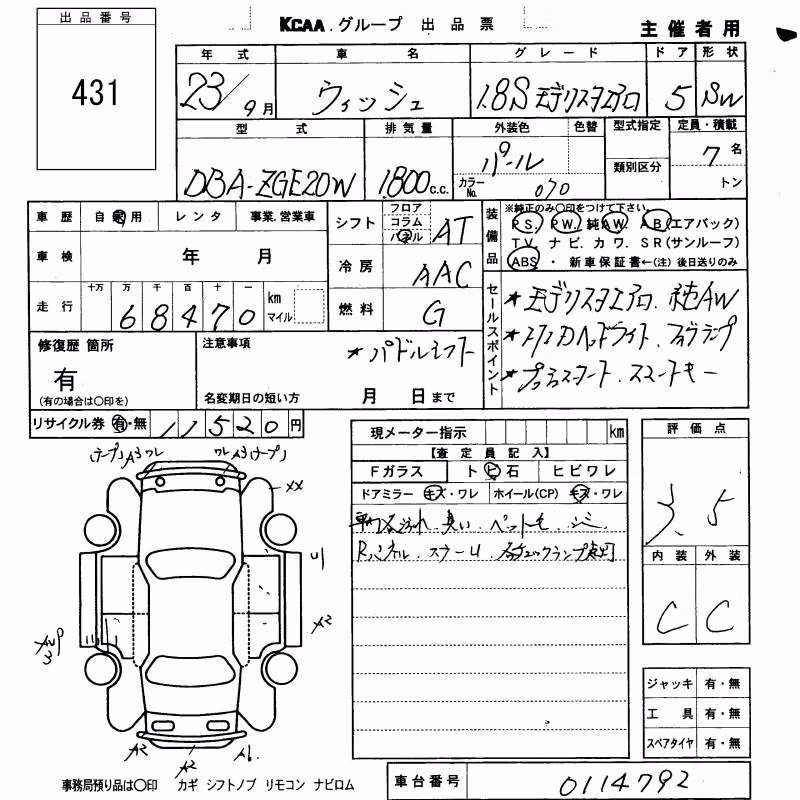 出品番号
431
KCAA.グループ 出品票
主催者用
年式 車名 グレード ドア 形状
23/9月 ウィッシュ 1.8S モデリスタエアロ 5 SW
型式 排気量 外装色 色替 型式指定 定員・積載
DBA-ZGE20W 1,800c.c. パール 7名
カラーNo. 070 類別区分 トン
車歴 自家用 レンタ 事業.営業車
車検 年 月
走行 十万 万 千 百 十 一
68470 km マイル
シフト フロア コラム パネル AT
冷房 AAC
燃料 G
装備品 ※純正のみ〇印をつけて下さい。
PS. PW. 純AW. AB(エアバック)
TV. ナビ. カワ. SR(サンルーフ)
ABS ・ 新車保証書←(注)後日送りのみ
セールスポイント
*モデリスタエアロ. 純AW
*HIDヘッドライト. フォグランプ
*プッシュスタート. スマートキー
修復歴 箇所
有
(有の場合は〇印を)
注意事項
*パドルシフト
名変期日の短い方 月 日まで
リサイクル券 有・無 11520円
現メーター指示 km
【査定員記入】
Fガラス ト ヒ 石 ヒビワレ
ドアミラー キズ・ワレ ホイール(CP) キズ・ワレ
臭い. ペット毛.
Rパネル.
評価点
3.5
内装 外装
C C
ジャッキ 有・無
工具 有・無
スペアタイヤ 有・無
(テープ) A3 ワレ ワレ A3 (テープ)
XX
U1
A2
3
A2
A2
A1
事務局預り品は〇印 カギ シフトノブ リモコン ナビロム
車台番号 0114792